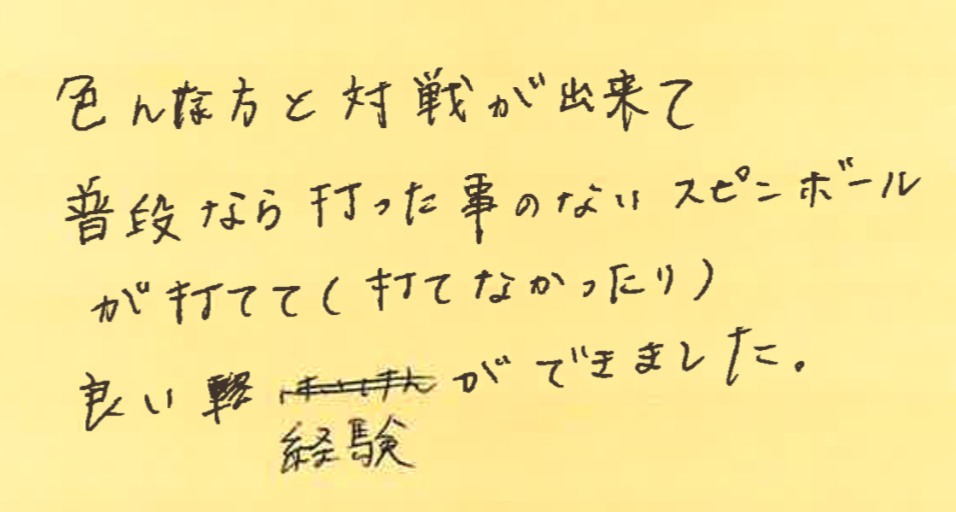 色んな方と対戦が出来て
普段なら打った事のないスピンボール
が打てて(打てなかったり)
良い ができました。
経験